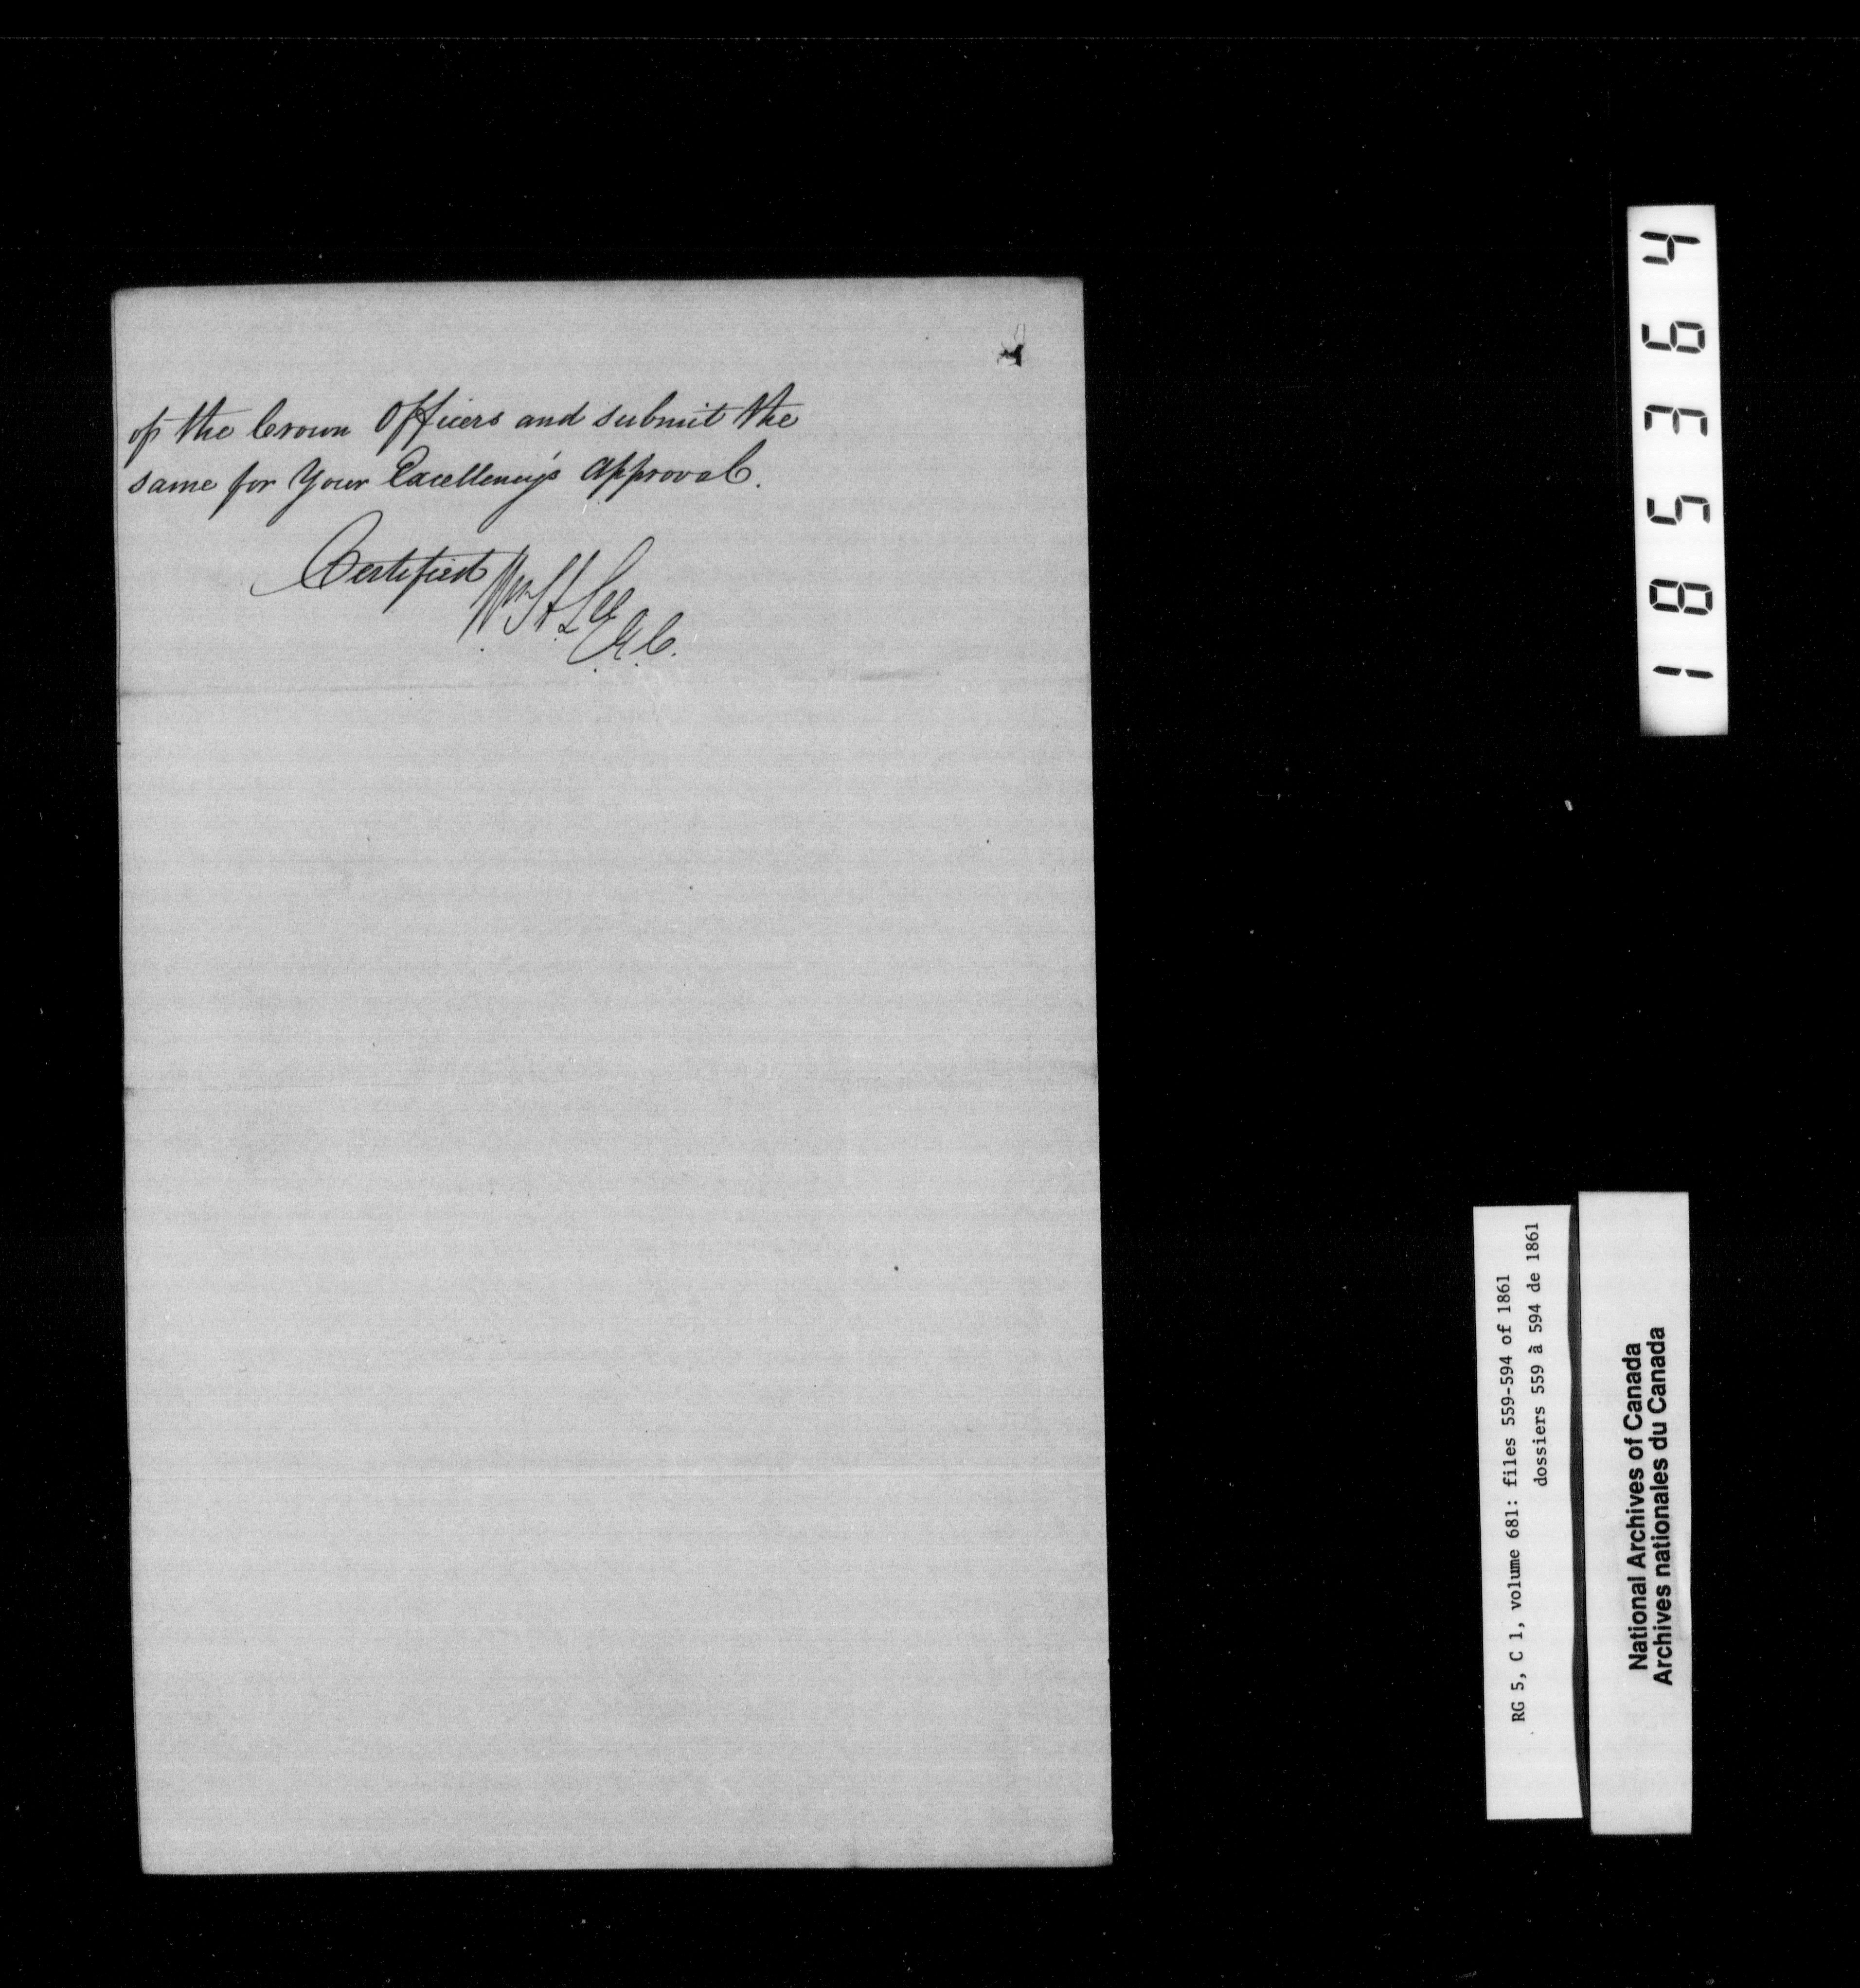 of the Crown Officers and submit the
same for Your Excellency's approval.
Certified
Wm H Lee
C.E.C.
185364
RG 5, C 1, volume 681: files 559-594 of 1861
dossiers 559 à 594 de 1861
National Archives of Canada
Archives nationales du Canada